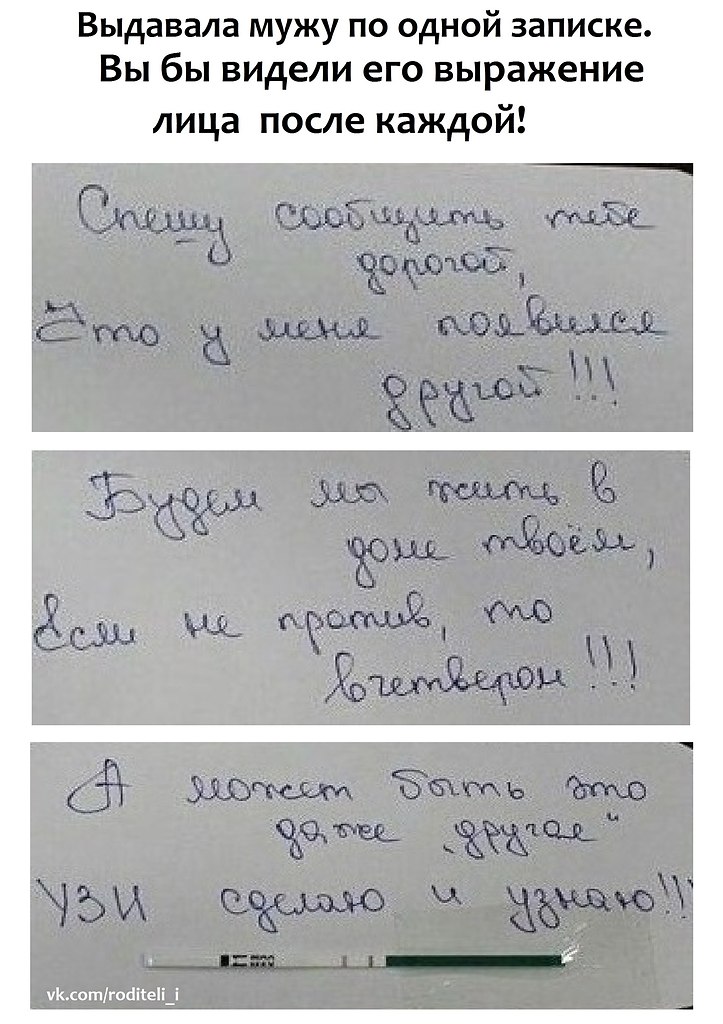 Выдавала мужу по одной записке.
Вы бы видели его выражение
лица после каждой!
Спешу сообщить тебе
дорогой,
Что у меня появился
другой!!!
Будем мы жить в
доме твоём,
Если не против, то
вчетвером!!!
А может быть это
даже „другая“
УЗИ сделаю и узнаю!!!
vk.com/roditeli_i